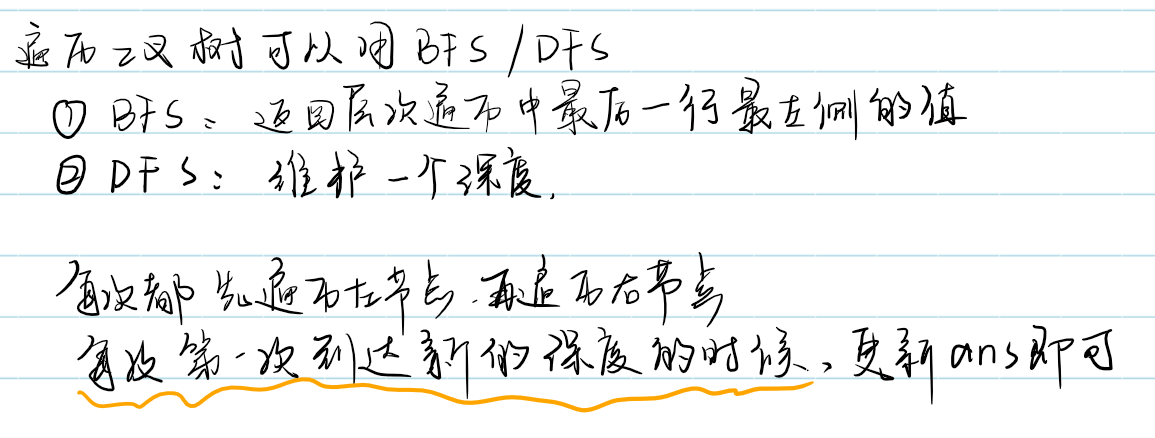 遍历二叉树可以用BFS/DFS
① BFS: 返回层次遍历中最后一行最左侧的值
② DFS: 维护一个深度.
每次都先遍历左节点.再遍历右节点
每次第一次到达新的深度的时候、更新ans即可